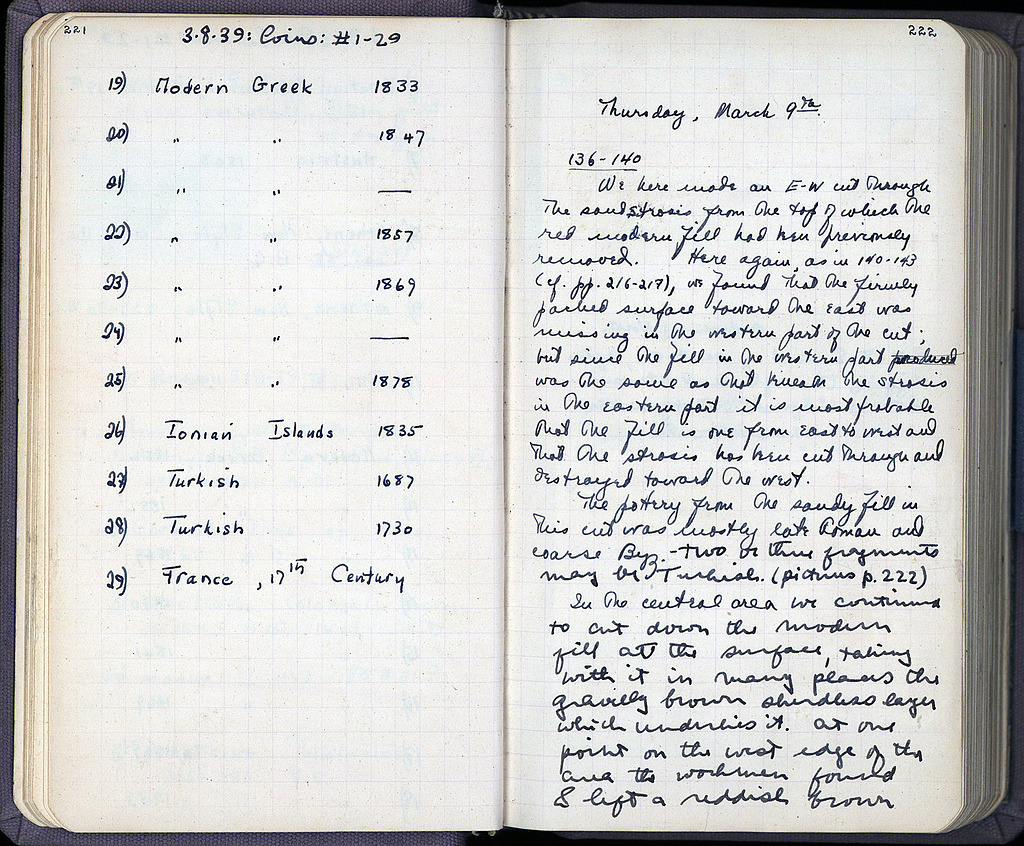 221
3.8.39: Coins: #1-29
19) Modern Greek 1833
20) " " 1847
21) " " —
22) " " 1857
23) " " 1869
24) " " —
25) " " 1878
26) Ionian Islands 1835
27) Turkish 1687
28) Turkish 1730
29) France, 17th Century
222
Thursday, March 9th.
136-140
We here made an E-W cut through
the sandstrosis from the top of which the
red modern fill had been previously
removed. Here again, as in 140-143
(cf. pp. 216-217), we found that the firmly
packed surface toward the east was
missing in the western part of the cut;
but since the fill in the western part produced
was the same as that beneath the strosis
in the eastern part it is most probable
that the fill is one from east to west and
that the strosis has been cut through and
destroyed toward the west.
The pottery from the sandy fill in
this cut was mostly late Roman and
coarse Byz. - two or three fragments
may be Turkish. (pictures p. 222)
In the central area we continued
to cut down the modern
fill at the surface, taking
with it in many places the
gravelly brown sherdless layer
which underlies it. At one
point on the west edge of the
area the workmen found
& left a reddish brown